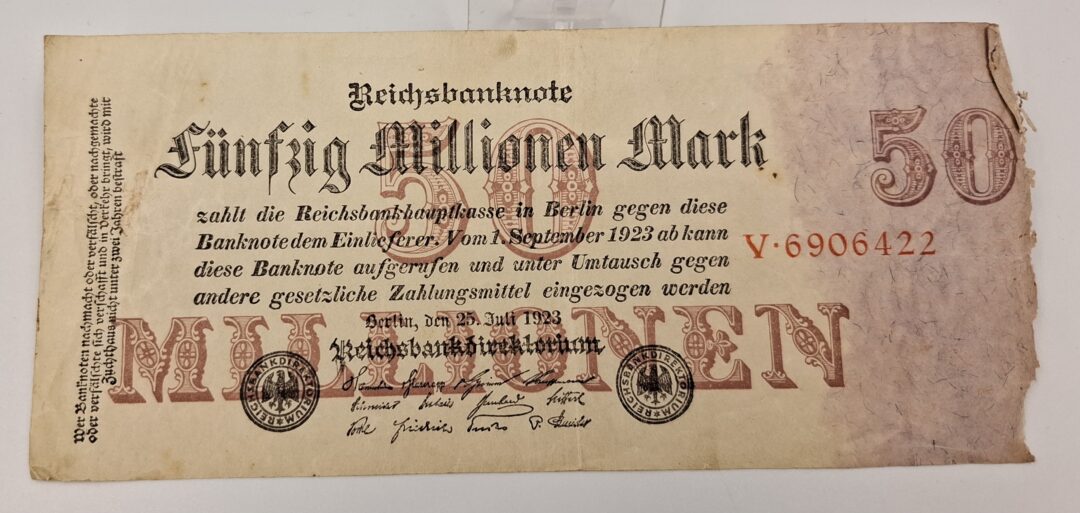 Reichsbanknote
Fünfzig Millionen Mark
50
50
zahlt die Reichsbankhauptkasse in Berlin gegen diese
Banknote dem Einlieferer. Vom 1. September 1923 ab kann
diese Banknote aufgerufen und unter Umtausch gegen
andere gesetzliche Zahlungsmittel eingezogen werden
V·6906422
MILLIONEN
Berlin, den 25. Juli 1923
Reichsbankdirektorium
REICHSBANKDIREKTORIUM
REICHSBANKDIREKTORIUM
Wer Banknoten nachmacht oder verfälscht, oder nachgemachte
oder verfälschte sich verschafft und in Verkehr bringt, wird mit
Zuchthaus nicht unter zwei Jahren bestraft